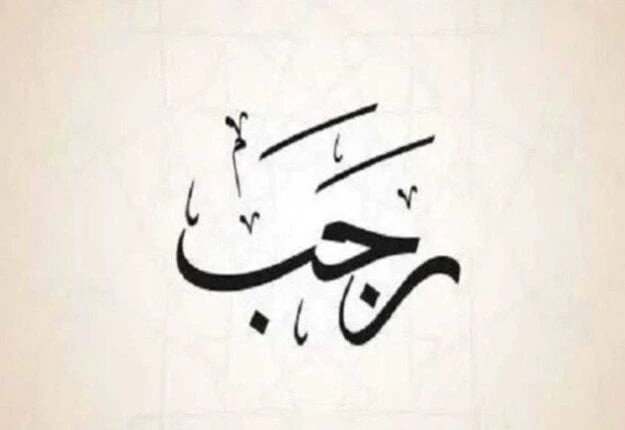 رَجَب